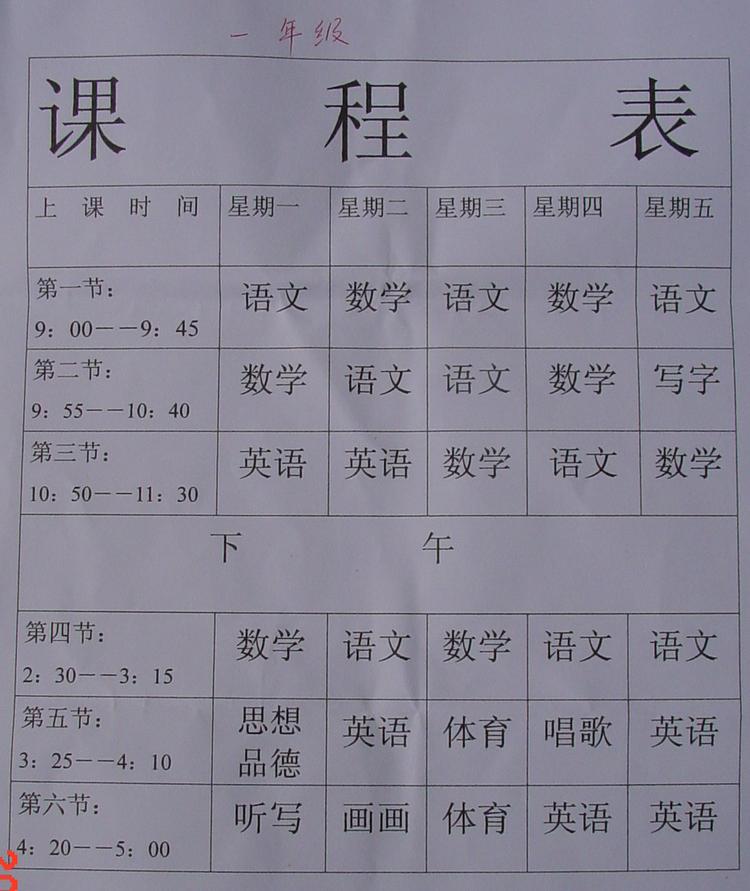 一年级
课 程 表
上 课 时 间 星期一 星期二 星期三 星期四 星期五
第一节：
9：00－－9：45 语文 数学 语文 数学 语文
第二节：
9：55－－10：40 数学 语文 语文 数学 写字
第三节：
10：50－－11：30 英语 英语 数学 语文 数学
下 午
第四节：
2：30－－3：15 数学 语文 数学 语文 语文
第五节：
3：25－－4：10 思想品德 英语 体育 唱歌 英语
第六节：
4：20－－5：00 听写 画画 体育 英语 英语